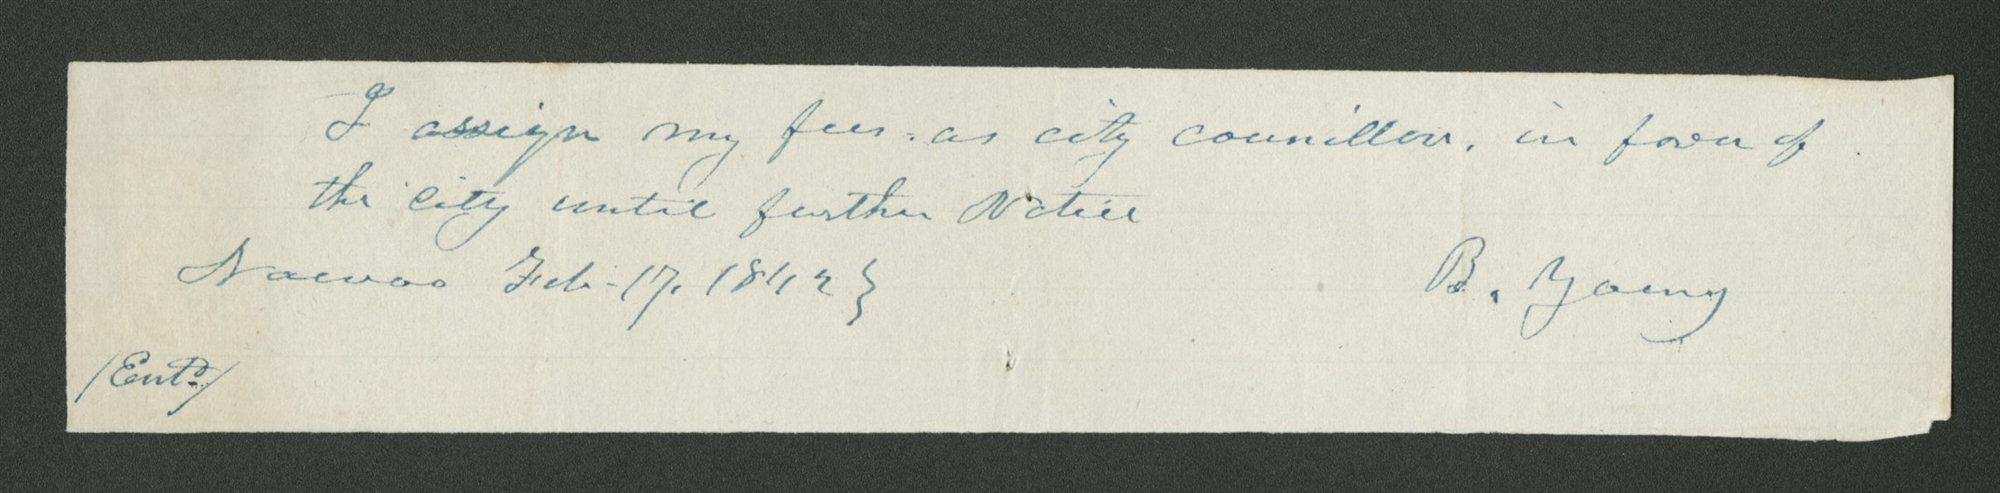 I assign my fees. as city counillor, in faver of
the city until further Notice
Nauvoo Feb-17, 1842}
B. Young
/Entd./